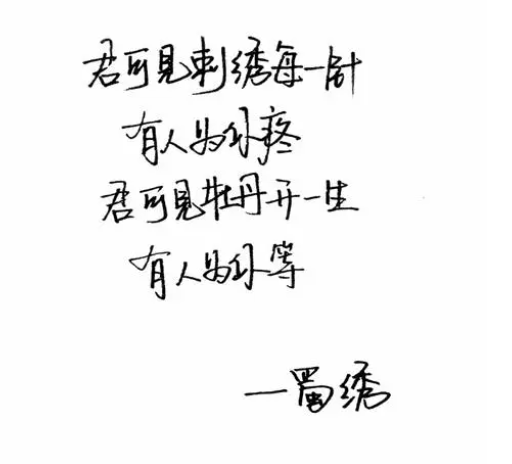 君可见刺绣每一针
有人为你疼
君可见牡丹开一生
有人为你等
—蜀绣